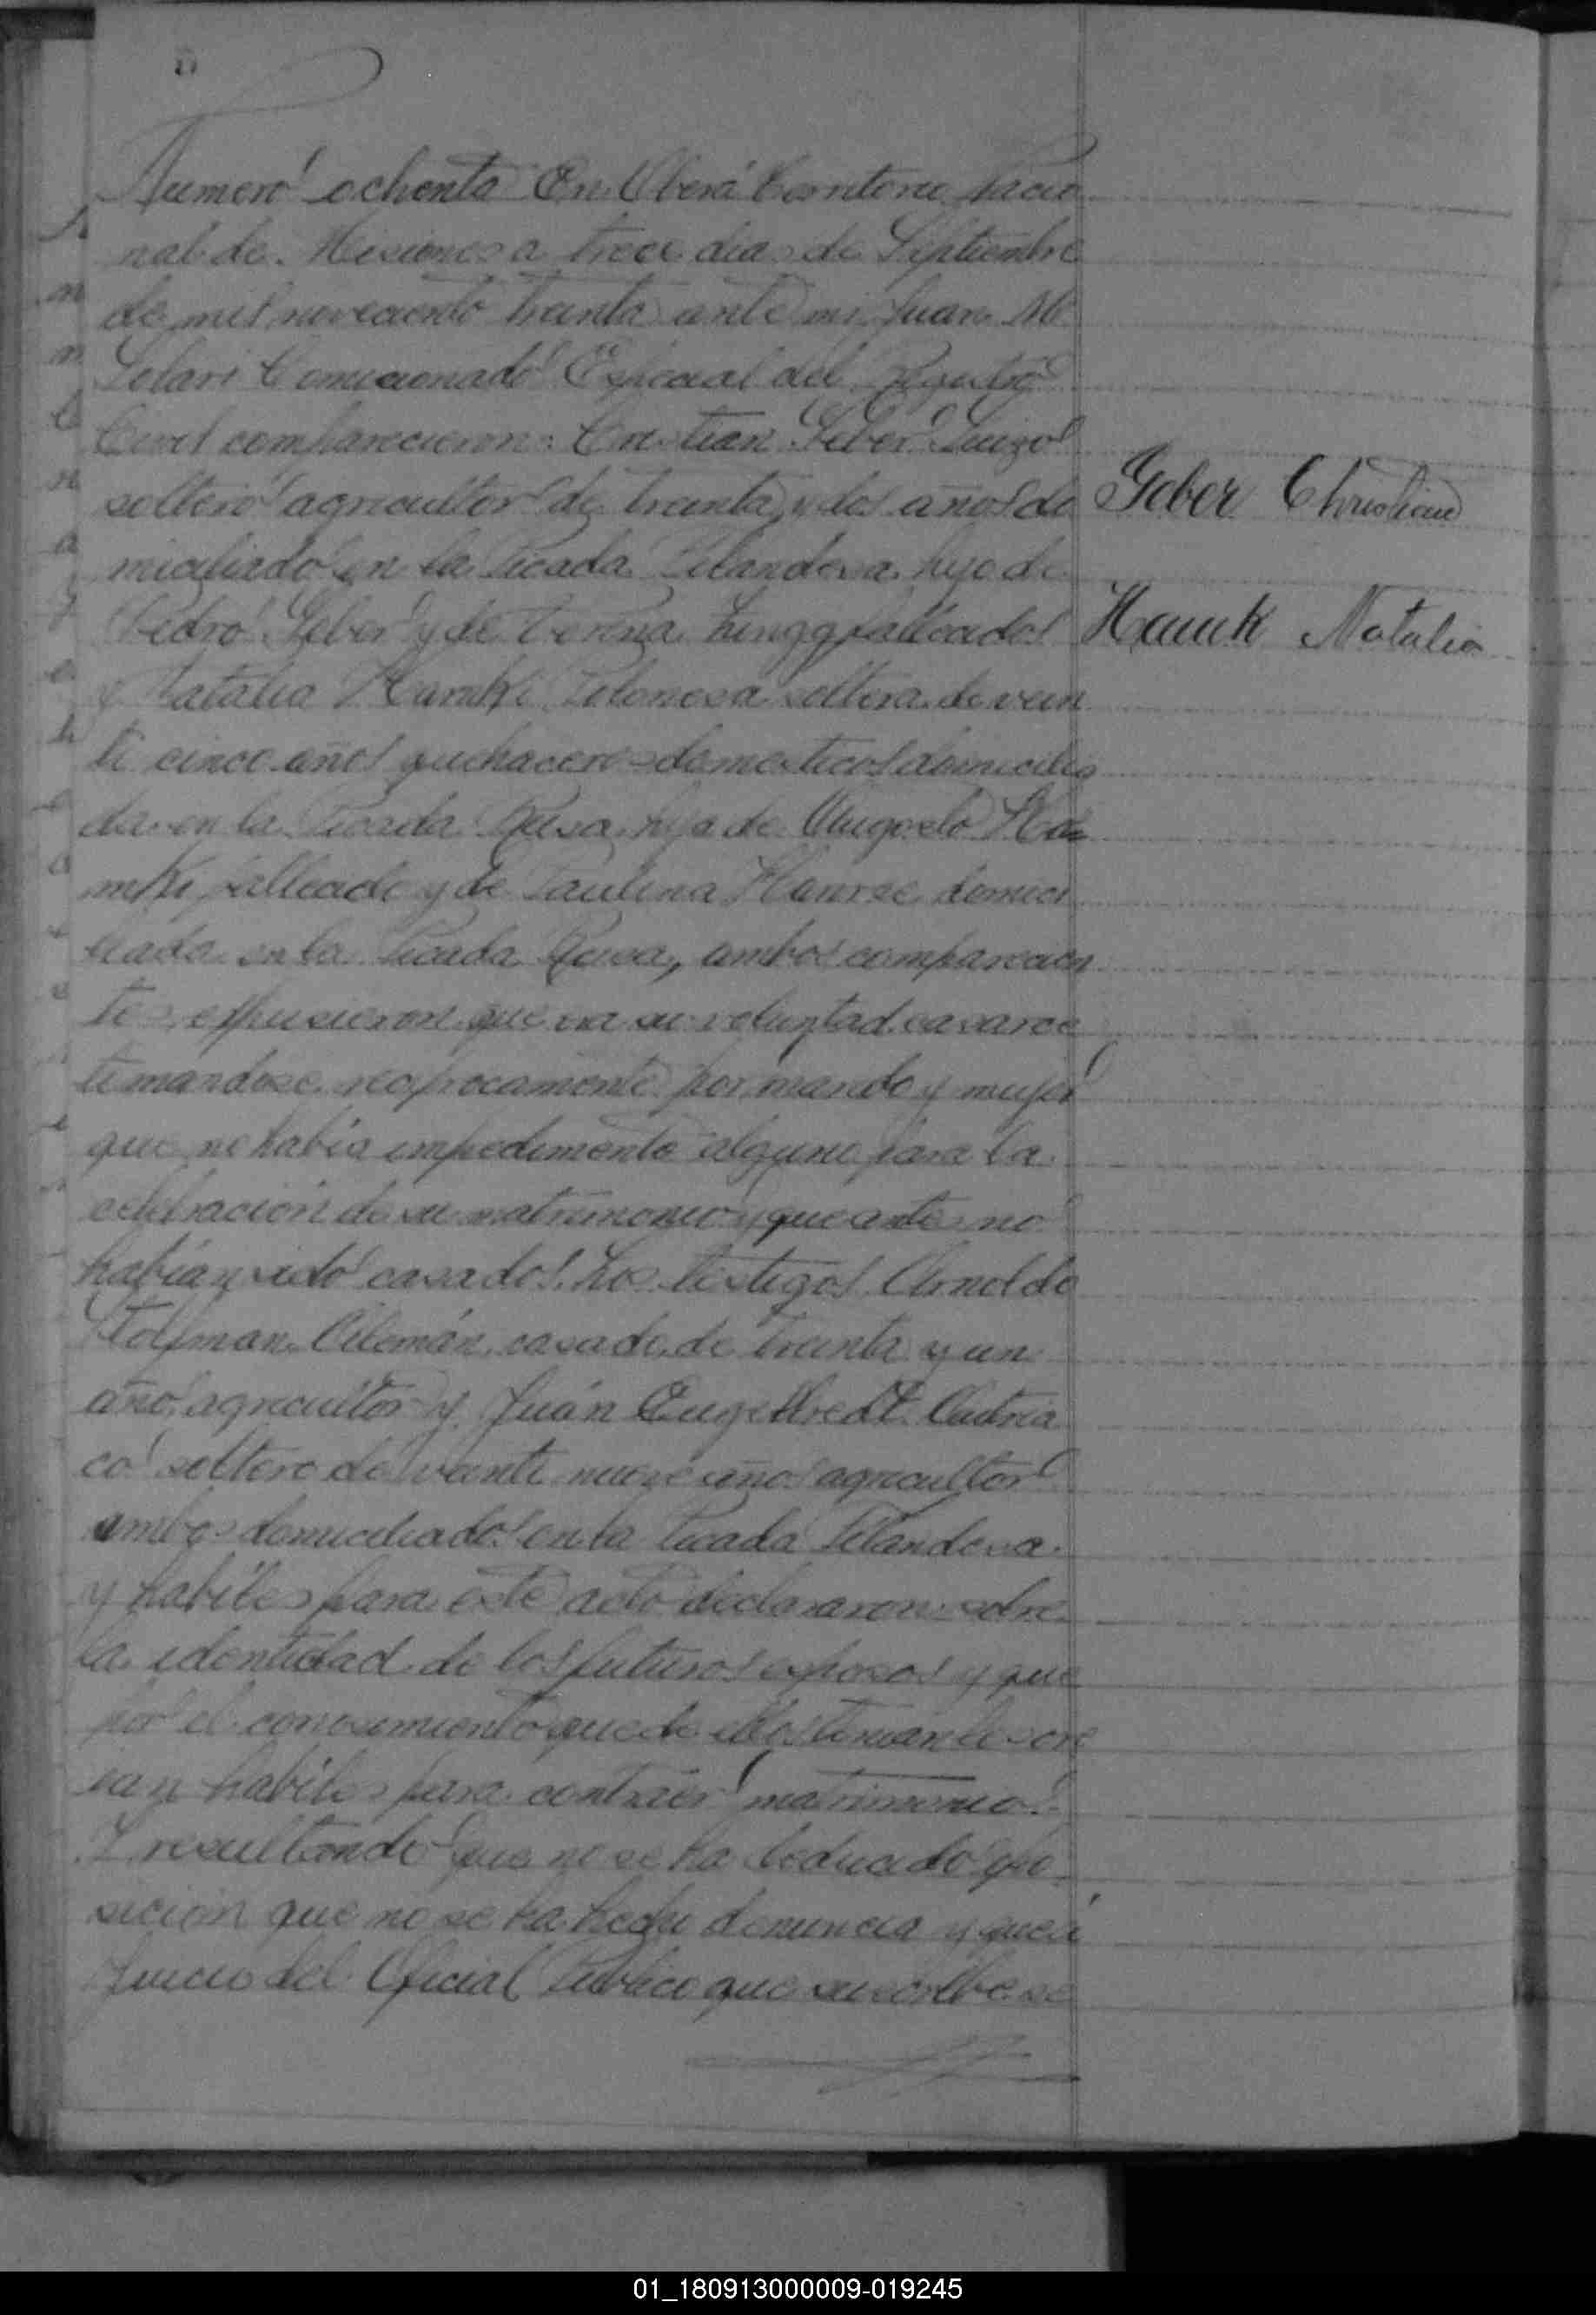 Numero ochenta En Oberá Territorio Nacio
nal de Misiones a trece dias de Septiembre
de mil noveciento treinta ante mi Juan M
Solari Comicionado Especial del Registro
Civil comparecieron: Cristian Geber Suizo
soltero agricultor de treinta y dos años do
miciliado en la Picada Filandesa hijo de
Geber Christian
Pedro Geber y de Verena fallecidos
Hamk Natalia
y Natalia Hamki Polonesa soltera de vein
ti cinco años quehaceres domesticos domicilia
da en la Picada Rusa hija de Augosto Ha
mki fallecido y de Paulina domici
liada en la Picada Rusa, ambos comparecien
tes expusieron que era su voluntad casarse
tomandose reciprocamente por marido y mujer
que no había impedimento alguno para la
celebración de su matrimonio y que antes no
habían sido casados. Los testigos Arnoldo
Alemán casado de treinta y un
año agricultor y Juán Austria
co soltero de veinti nueve años agricultor
ambos domiciliados en la Picada Filandesa
y habiles para este acto declararon sobre
la identidad de los futuros esposos y que
por el conocimiento que de ellos tenian les cre
ian habiles para contraer matrimonio.
Y resultando que no se ha deducido opo
sicion que no se ha hecho denuncia y que a
Juicio del Oficial Publico que suscribe se
01_180913000009-019245